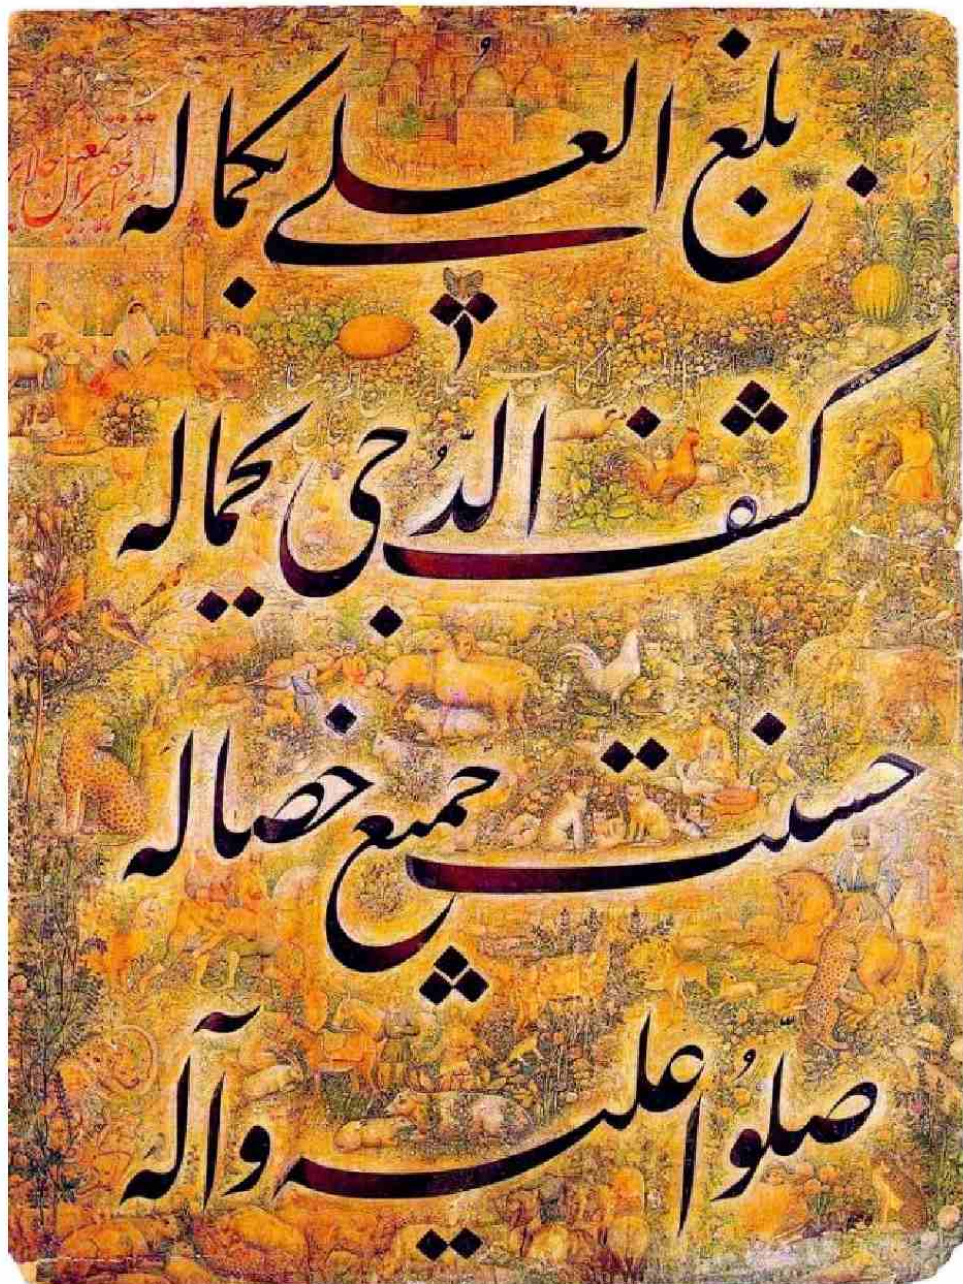 بلغ العلى بكماله
كشف الدّجى بجماله
حسنت جميع خصاله
صلّوا عليه وآله